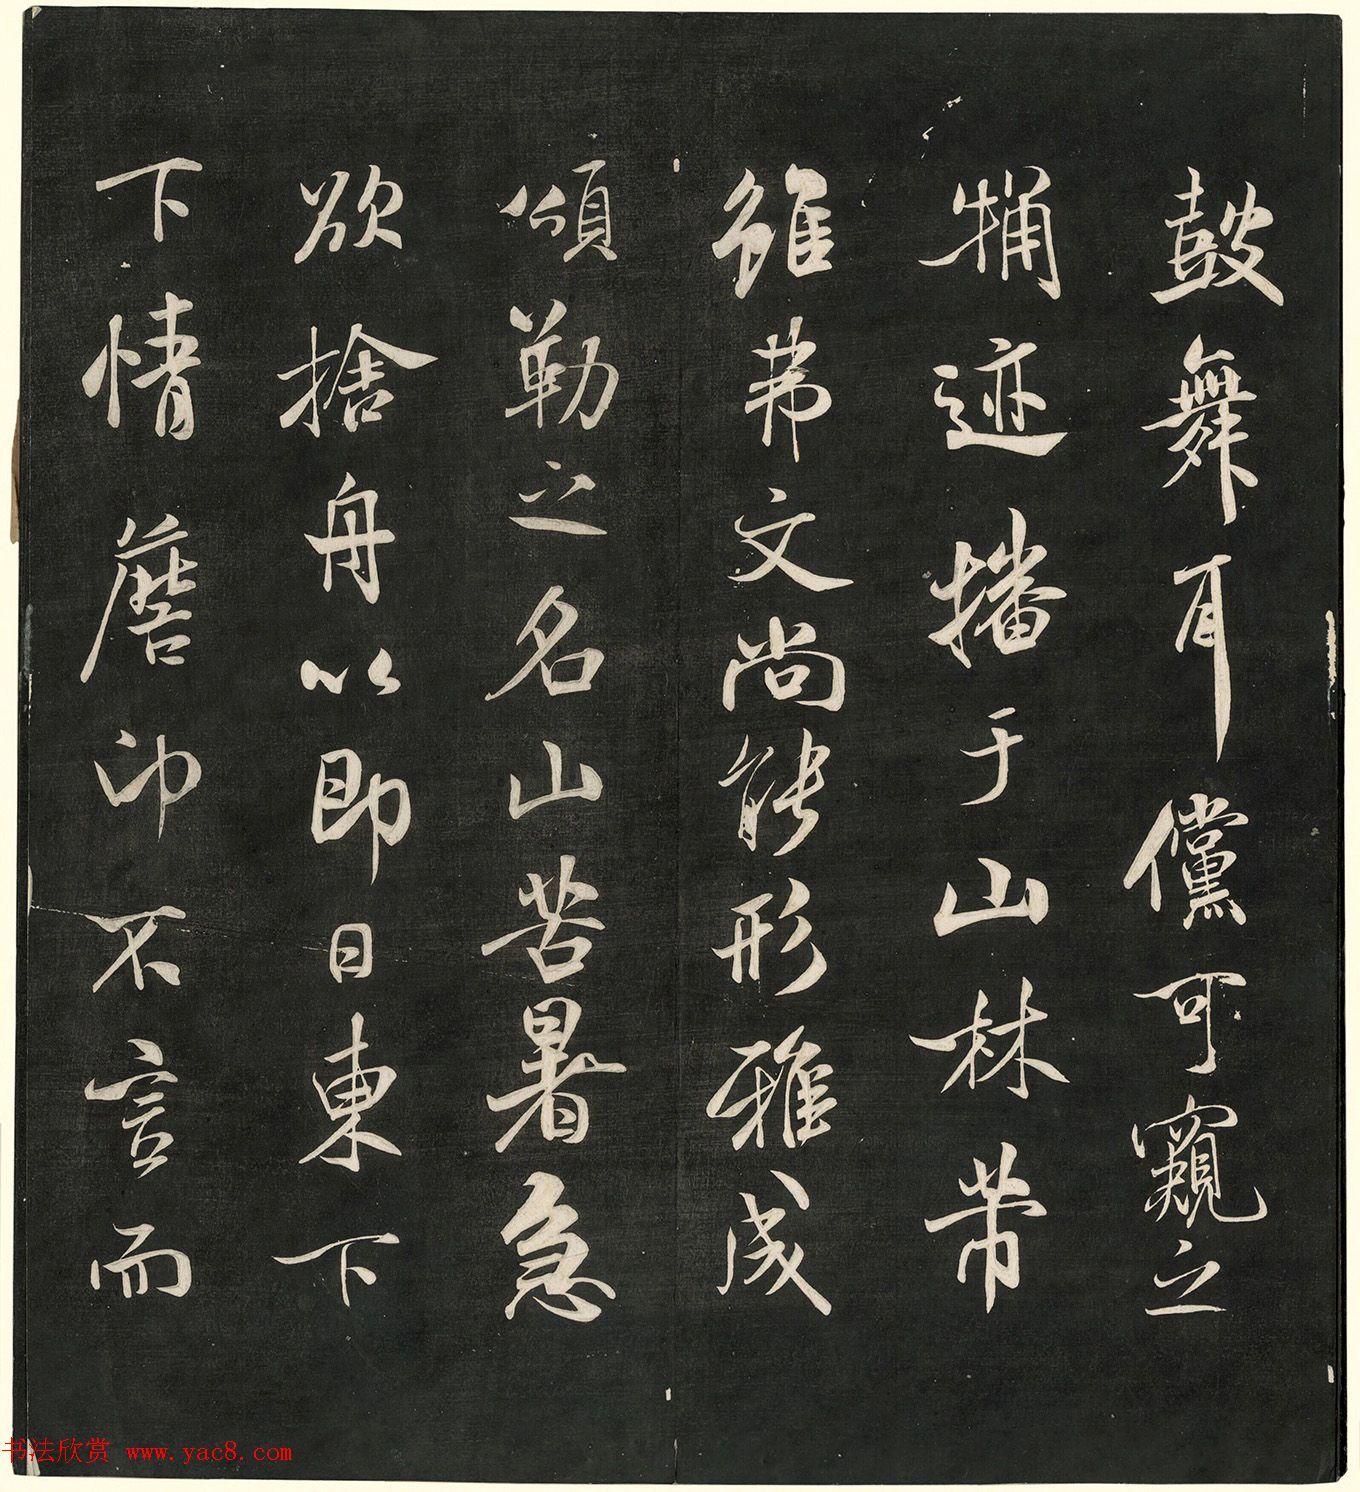 鼓舞耳儻可窺之
牗迹播于山林帶
雖弗文尚能形雅成
頌勒之名山苦暑急
欲捨舟以即日東下
下情蘑卬不言而
书法欣赏 www.yac8.com